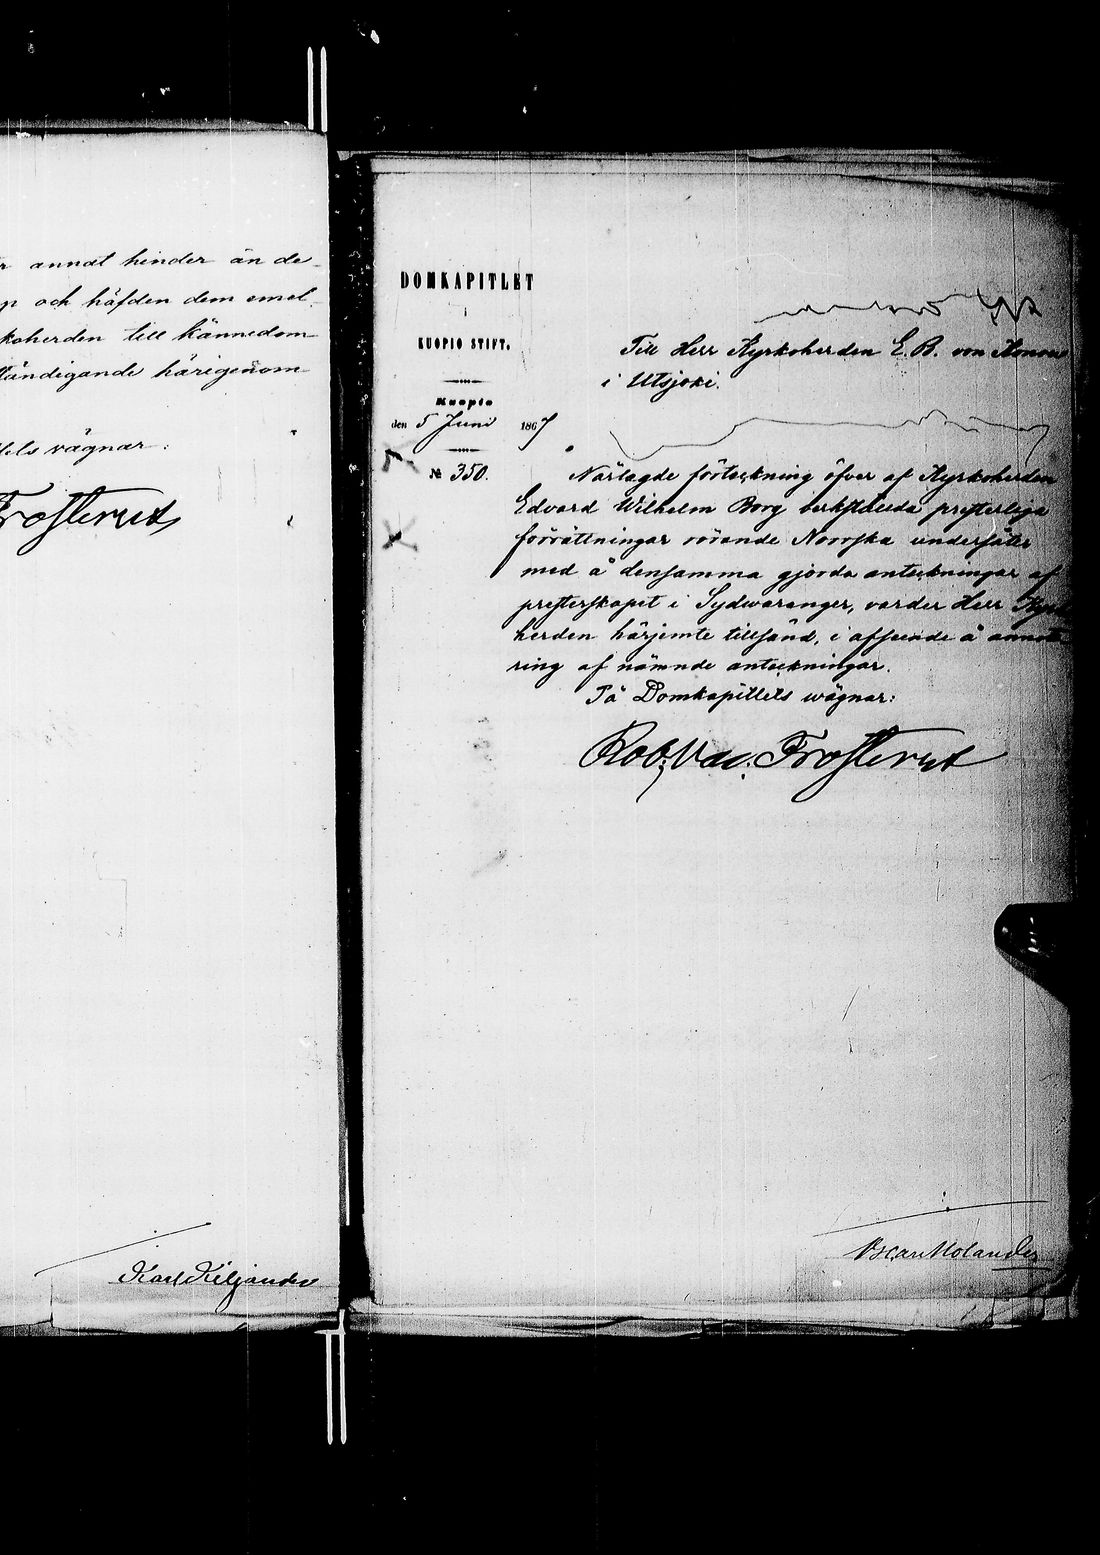 annat hinder än de-
och häfden dem emel-
koherden till kännedom
ständigande härigenom
vägnar:
Frosterus
Karl Kiljander
DOMKAPITLET
i
KUOPIO STIFT.
Kuopio
den 5 Juni 1867
№ 350.
Till Herr Kyrkoherden E. B. von
i Utsjoki.
Närlagde förteckning öfver af Kyrkoherden
Edvard Wilhelm Borg verkstälda presterliga
förrättningar rörande Norrska undersåter
med å densamma gjorda anteckningar af
presterskapet i Sydwaranger, varder Herr Kyrko-
herden härjemte tillsänd, i afseende å annote-
ring af nämnde anteckningar.
På Domkapitlets wägnar:
Rob. Val. Frosterus
Oscar Molander